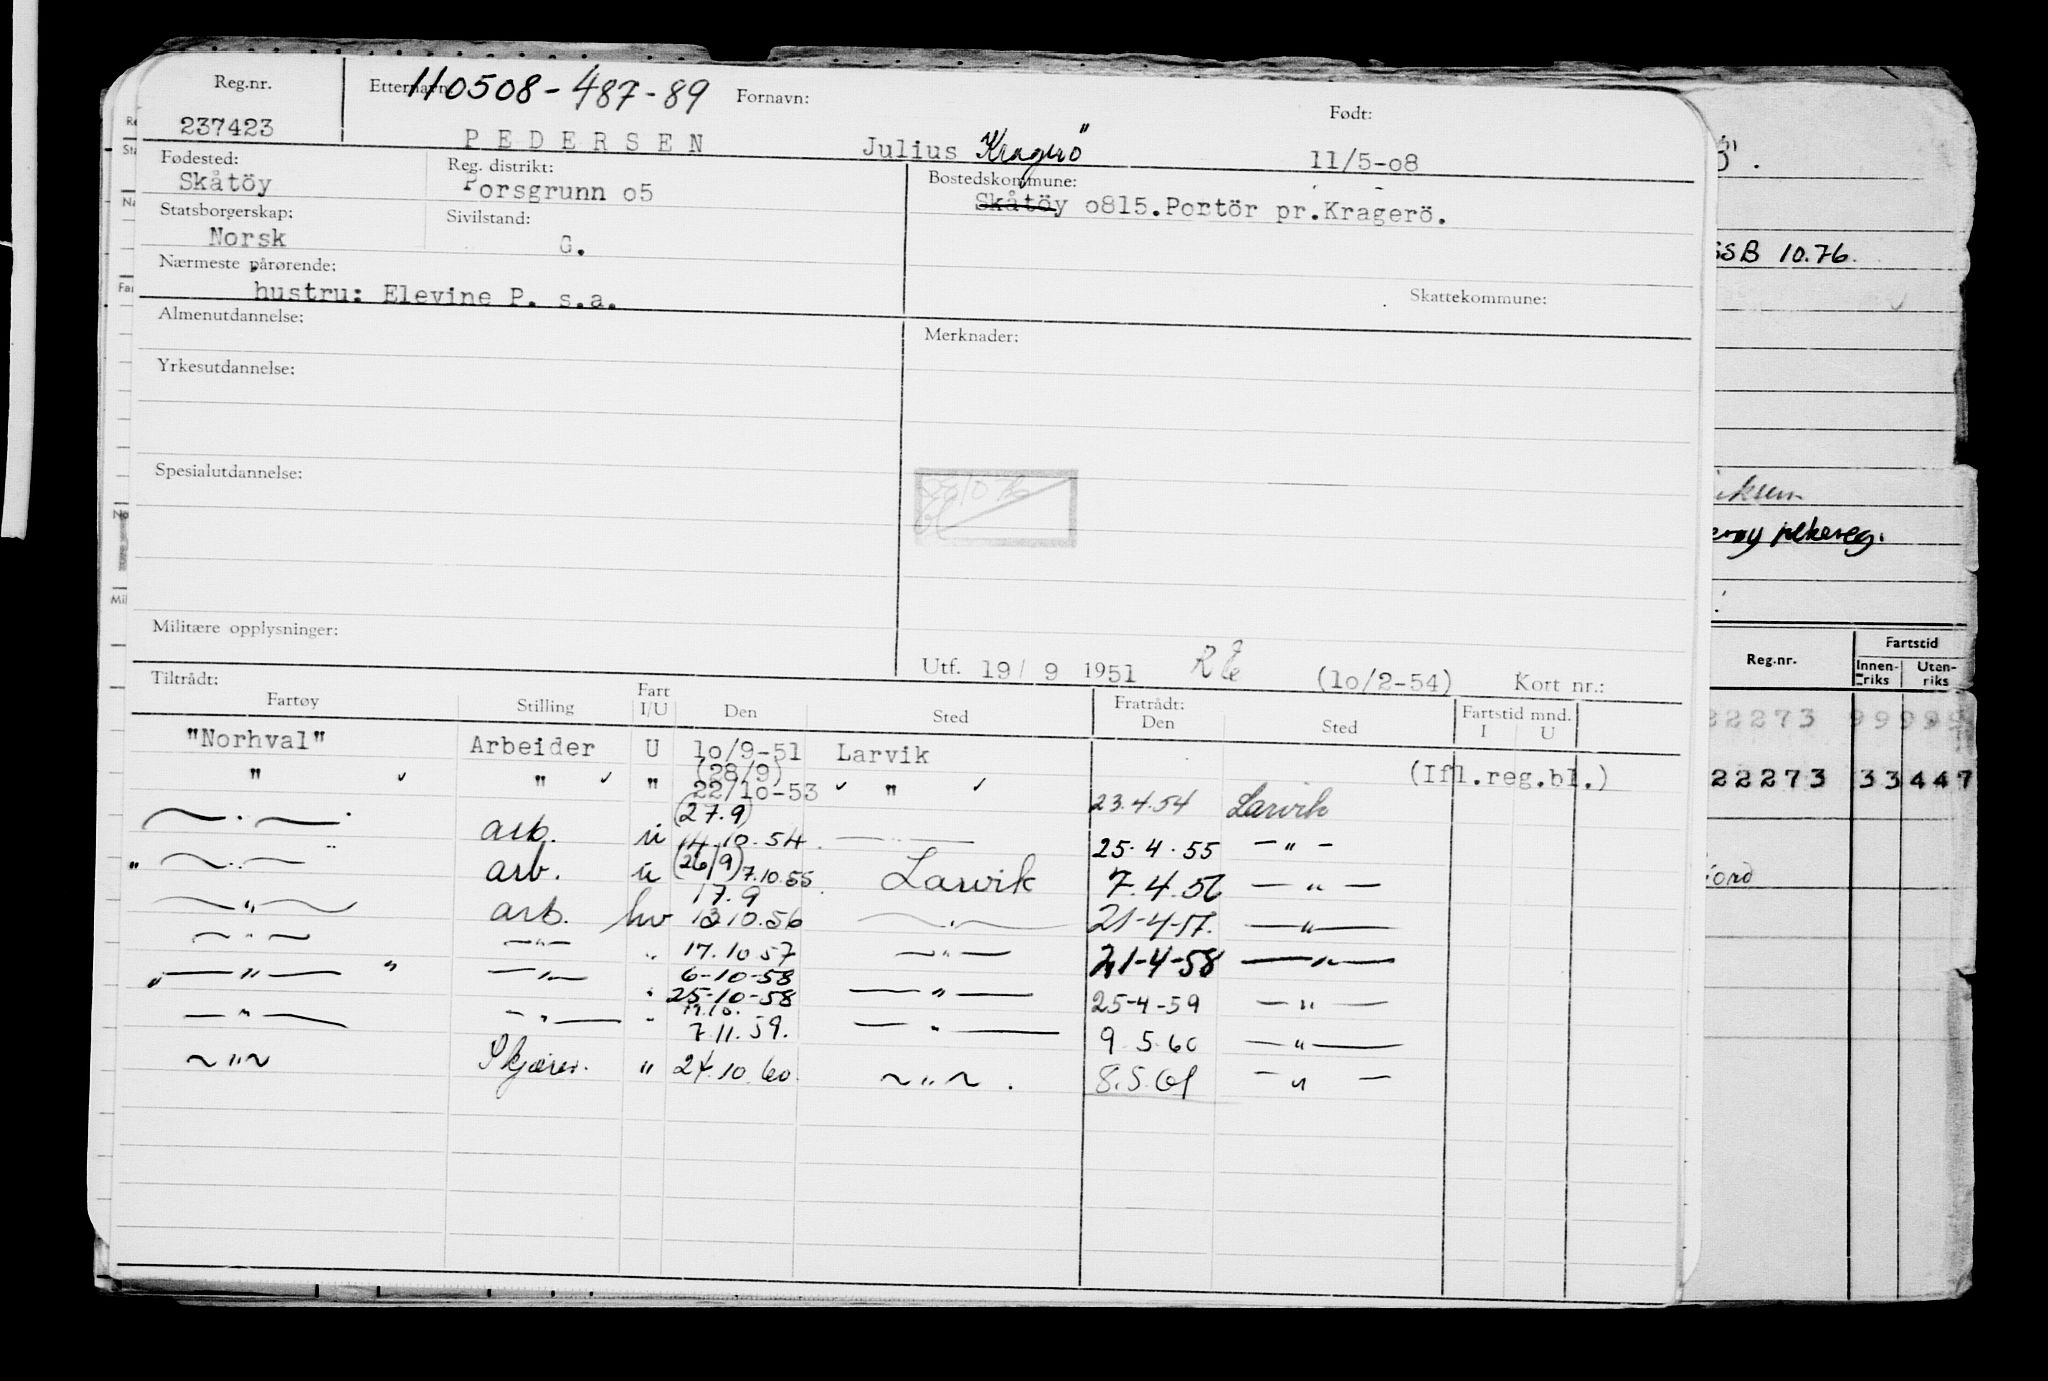 Reg.nr. Etternavn: 110508-487-89 Fornavn: Født:
237423 PEDERSEN Julius Kragerö 11/5-o8
Fødested: Reg. distrikt: Bostedskommune:
Skåtöy Porsgrunn o5 Skåtöy o815.Portör pr.Kragerö.
Statsborgerskap: Sivilstand:
Norsk G.
Nærmeste pårørende:
hustru: Elevine P. s.a. Skattekommune:
Almenutdannelse: Merknader:
Yrkesutdannelse:
Spesialutdannelse:
Militære opplysninger:
Utf. 19/ 9 1951 (1o/2-54) Kort nr.:
Tiltrådt: Fart Fratrådt: Fartstid mnd.
Fartøy Stilling I/U Den Sted Den Sted I U
"Norhval" Arbeider U 1o/9-51 Larvik
(28/9) (Ifl.reg.bl.)
" " " 22/1o-53 " 23.4.54 Larvik
(27.9)
— . — arb. u 14.10.54 — 25.4.55 — " —
" — . . — arb. u (26/9) 7.10.55 Larvik 7.4.56 — " —
17.9
— " — arb. hv 13.10.56 — " — 21-4-57. — " —
— " — — " — " 17.10 57 — " — 21-4-58 — " —
6-10-58
" — " — " — " — " 25-10-58 — " — 25-4-59 — " —
— " — — " — " 7.11.59. — " — 9.5.60 — " —
— " — Skjærer. " 24.10.60. — " — . 8.5.61 — " —
SSB 10.76.
Reg.nr. Fartstid
Innen-riks Uten-riks
22273 99 999
22273 33 447